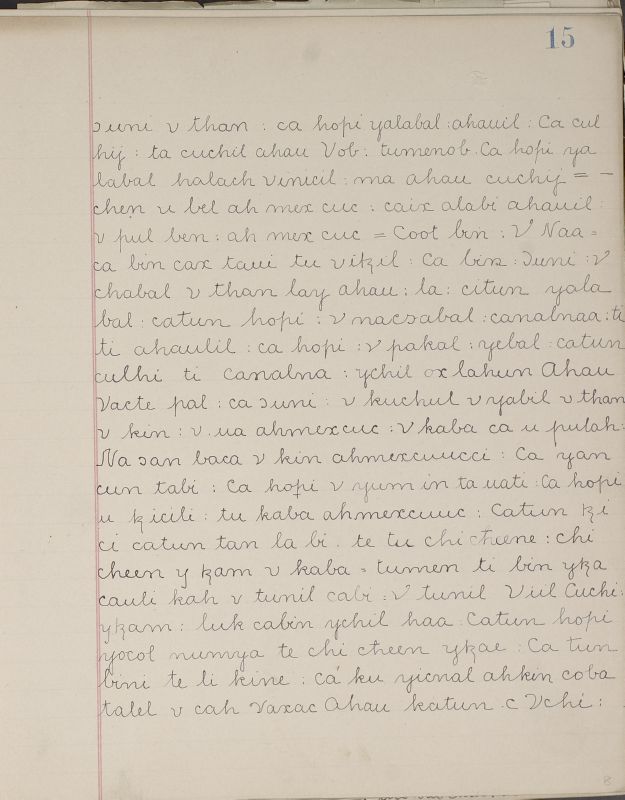 15
ɔuni v than : ca hopi yalabal : ahauil : Ca cul
hij : ta cuchil ahau Vob : tumenob. Ca hopi ya
labal halach vinicil : ma ahau cuchij = -
chen u bel ah mex cuc : caix alabi ahauil :
v pul ben : ah mex cuc = Coot bin : V Naa =
ca bin cax taui tu vitzil : Ca bin : ɔuni : V
chabal v than lay ahau : la : citun yala
bal : catun hopi : v nacsabal : canalnaa : ti
ti ahaulil : ca hopi : v pakal : yebal : catun
culhi ti canalna : ychil ox lahun Ahau
Vacte pal : ca ɔuni : v kuchul v yabil v than
v kin : v . ua ahmexcuc : v kaba ca u pulah :
Na ɔan baca v kin ahmexcuucci : Ca yan
cun tabi : Ca hopi v yum in ta uati : Ca hopi
u kicili : tu kaba ahmexcuuc : Catun ki
ci catun tan la bi . te tu chi cheene : chi
cheen y kam v kaba = tumen ti bin yka
cauli kah v tunil cabi : V tunil Viil Cuchi :
ykam : luk cabin ychil haa : Catun hopi
yocol numya te chi cheen ykae : Ca tun
bini te li kine : cá ku yicnal ahkin coba
talel v cah Vaxac Ahau katun . c Vchi :
8